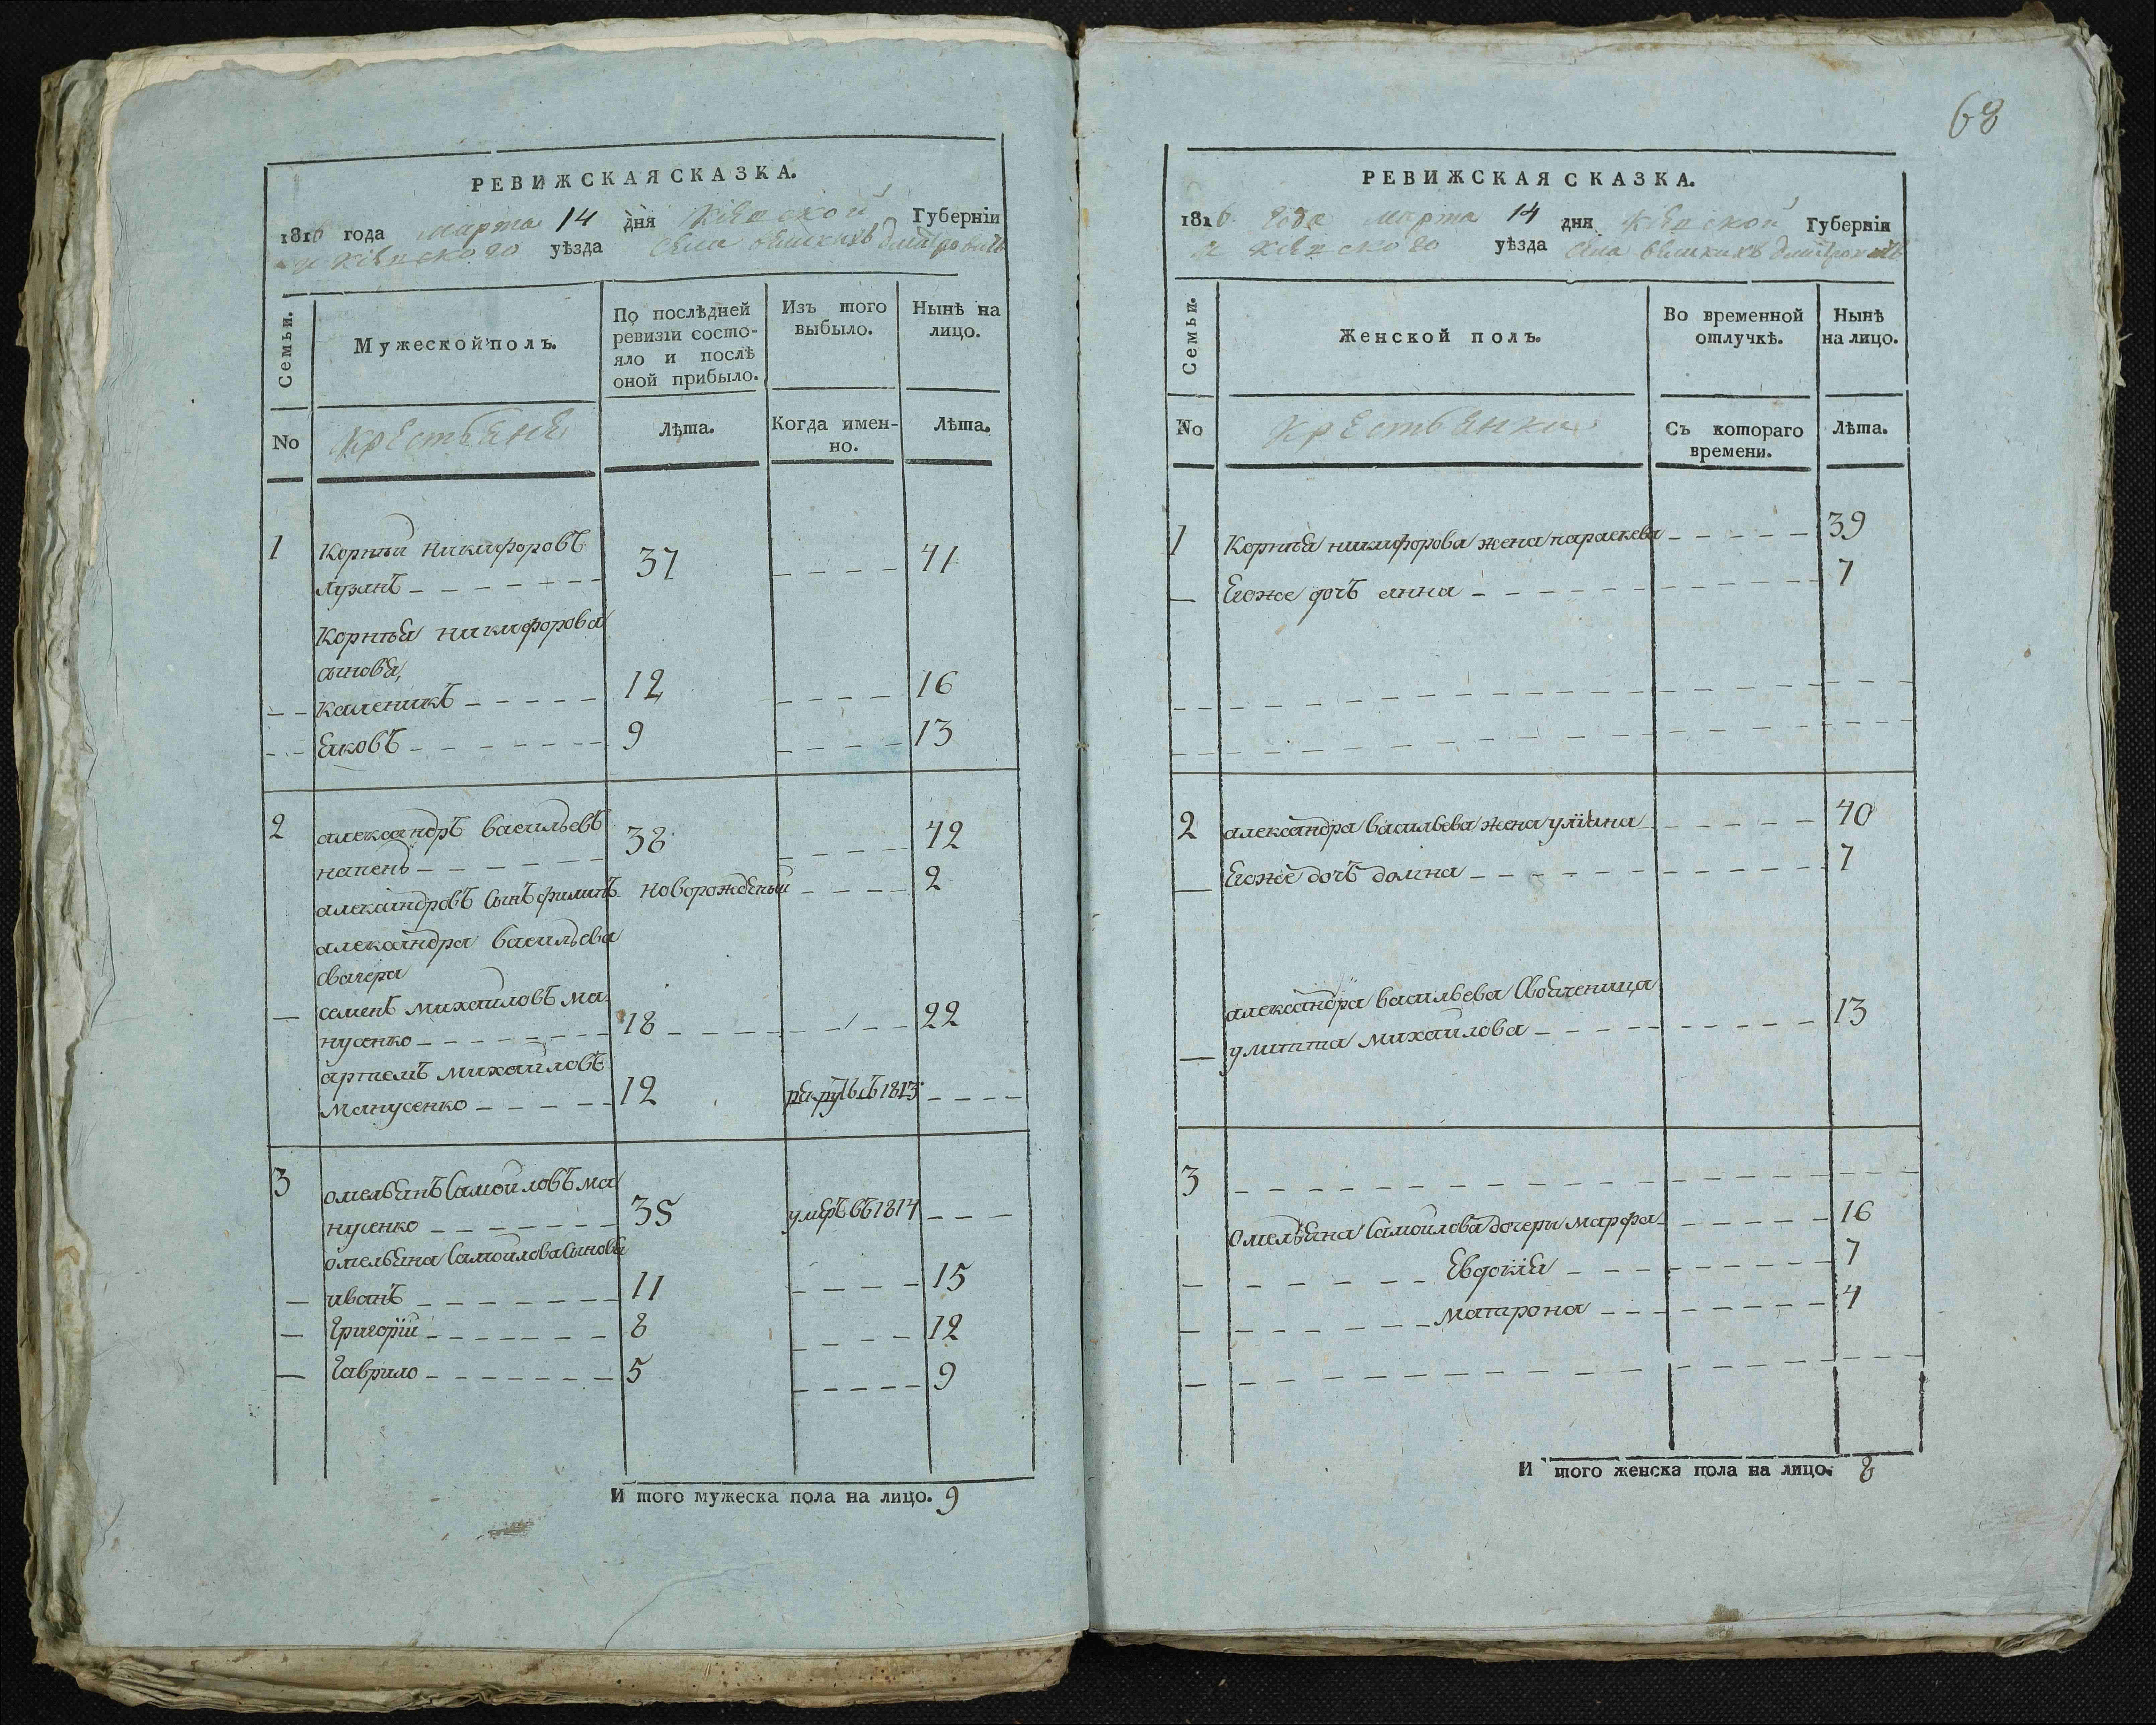 РЕВИЖСКАЯ СКАЗКА.
1816 года марта 14 дня Кіевской Губерніи
и Кіевского уѣзда села великихъ дмитровичь
Семьи.
Мужеской полъ.
По послѣдней ревизіи состояло и послѣ оной прибыло.
Изъ того выбыло.
Нынѣ на лицо.
No крестьяне Лѣта. Когда именно. Лѣта.
1 Корнѣй никифоровъ
лузанъ 37 41
Корнѣя никифорова
сыновя,
каленикъ 12 16
яковъ 9 13
2 александръ васильевъ
напень 38 42
александровъ сынъ филипъ новорожденый 2
александра васильева
свачера
семенъ михайловъ ма
нусенко 18 22
артемъ михайловъ
манусенко 12 рекрутъ съ 1813
3 омельянъ самойловъ ма
нусенко 35 умеръ въ 1814
омельяна самойлова сыновя
иванъ 11 15
григорій 8 12
гаврило 5 9
И того мужеска пола на лицо. 9
68
РЕВИЖСКАЯ СКАЗКА.
1816 года марта 14 дня Кіевской Губерніи
и Кіевского уѣзда села великихъ дмитровичь
Семьи.
Женской полъ.
Во временной отлучкѣ.
Нынѣ на лицо.
No крестьянки Съ котораго времени. Лѣта.
1 Корнѣя никифорова жена параскева 39
Егоже дочь анна 7
2 александра васильева жена уліяна 40
Егоже дочь домна 7
александра васильева своячениця
улитта михайлова 13
3
омельяна самойлова дочери марфа 16
Евдокія 7
матрона 4
И того женска пола на лицо. 8